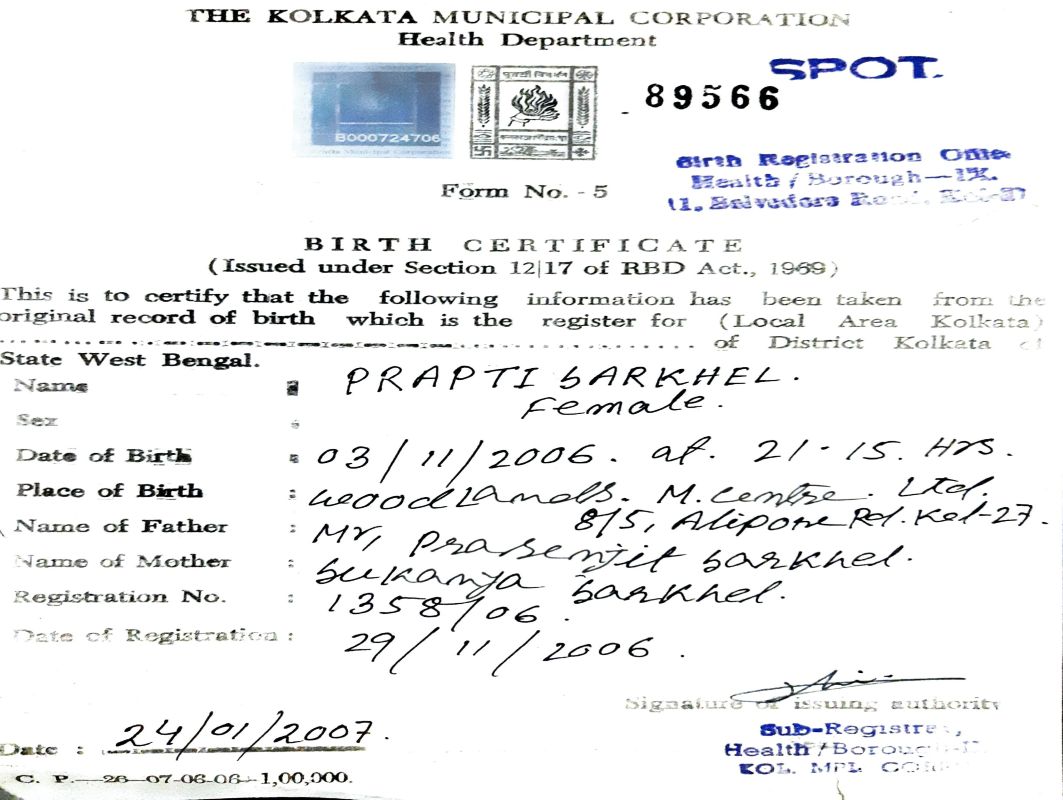 THE KOLKATA MUNICIPAL CORPORATION
Health Department
SPOT.
89566
B000724706
Birth Registration Office
Health / Borough—IX.
11, Belvedore Road, Kol-27
Form No. - 5
BIRTH CERTIFICATE
(Issued under Section 12|17 of RBD Act., 1969)
This is to certify that the following information has been taken from the
original record of birth which is the register for (Local Area Kolkata)
of District Kolkata of
State West Bengal.
Name : PRAPTI SARKHEL.
Sex : Female.
Date of Birth : 03/11/2006. at. 21.15. Hrs.
Place of Birth : Woodlands. M. Centre. Ltd.
8/5, Alipore Rd. Kol-27.
Name of Father : Mr, Prasenjit Sarkhel.
Name of Mother : Sukanya Sarkhel.
Registration No. : 1358/06.
Date of Registration : 29/11/2006.
Signature of issuing authority
Date : 24/01/2007.
Sub-Registrar,
Health / Borough
KOL. MPL
C. P.—26—07-06-06—1,00,000.